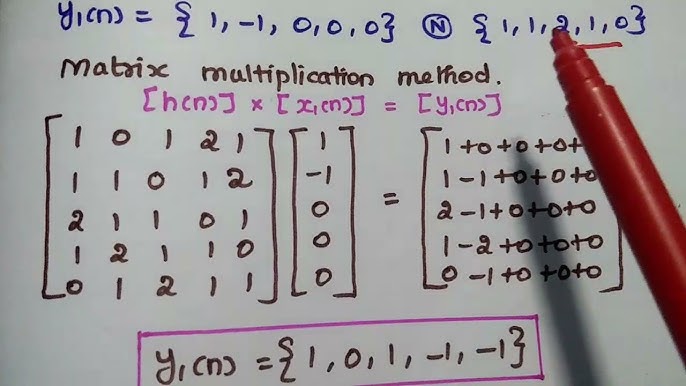 y₁(n) = { 1, -1, 0, 0, 0} Ⓝ { 1, 1, 2, 1, 0}
Matrix multiplication method.
[h(n)] × [x₁(n)] = [y₁(n)]
1 0 1 2 1 1 1+0+0+0+
1 1 0 1 2 -1 1-1+0+0+0
2 1 1 0 1 0 = 2-1+0+0+0
1 2 1 1 0 0 1-2+0+0+0
0 1 2 1 1 0 0-1+0+0+0
y₁(n) = { 1, 0, 1, -1, -1}